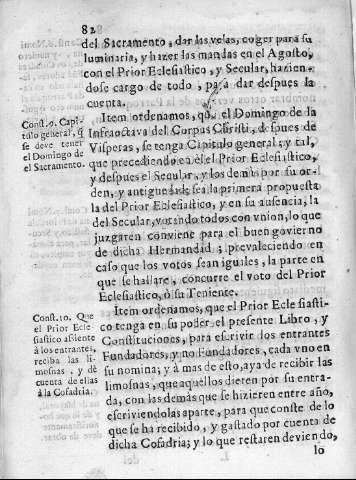 82
del Sacramento, dar las velas, coger para su
luminaria, y hazer las mandas en el Agosto,
con el Prior Eclesiastico, y Secular, hazien-
dose cargo de todo, para dar despues la
cuenta.
Const. 9. Capi-
tulo general, q̃
se deve tener
el Domingo de
el Sacramento.
Item ordenamos, que el Domingo de la
Infraoctava del Corpus Christi, despues de
Visperas, se tenga Capitulo general; y tal,
que precediendo en èl el Prior Eclesiastico,
y despues el Secular, y los demàs por su or-
den, y antiguedad; sea la primera propuesta
la del Prior Eclesiastico, y en su ausencia, la
del Secular, votando todos con vnion, lo que
juzgaren conviene para el buen govierno
de dicha Hermandad; prevaleciendo en
caso que los votos sean iguales, la parte en
que se hallare, concurre el voto del Prior
Eclesiastico, ò su Teniente.
Const. 10. Que
el Prior Ecle-
siastico assiente
à los entrantes,
reciba las li-
mosnas, y dè
cuenta de ellas
à la Cofadria.
Item ordenamos, que el Prior Eclesiasti-
co tenga en su poder el presente Libro, y
Constituciones, para escrivir los entrantes
Fundadores, y no Fundadores, cada vno en
su nomina; y à mas de esto, aya de recibir las
limosnas, que aquellos dieren por su entra-
da, con las demàs que se hizieren entre año,
escriviendolas aparte, para que conste de lo
que se ha recibido, y gastado por cuenta de
dicha Cofadria; y lo que restaren deviendo,
lo